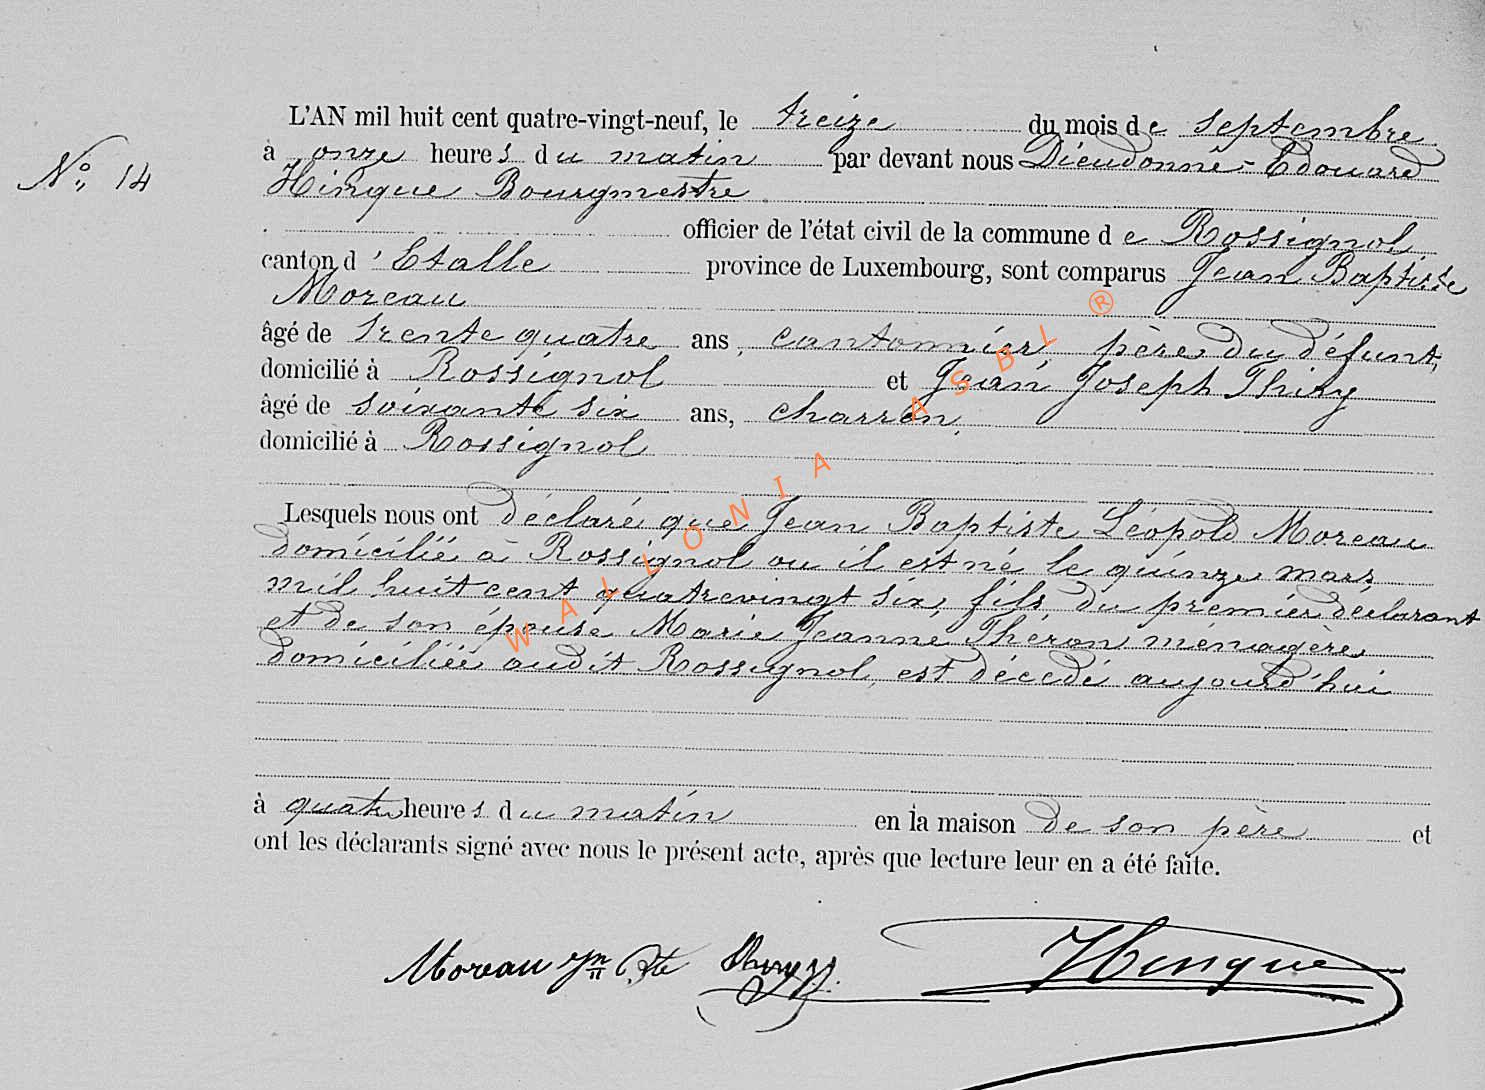 L'AN mil huit cent quatre-vingt-neuf, le treize du mois de septembre
N° 14
à onze heures du matin par devant nous Dieudonné-Edouard
Hinque Bourgmestre
officier de l'état civil de la commune de Rossignol,
canton d'Etalle province de Luxembourg, sont comparus Jean Baptiste
Moreau
âgé de trente quatre ans, cantonnier, père du défunt,
domicilié à Rossignol et Jean Joseph Thiry
âgé de soixante six ans, charron,
domicilié à Rossignol
Lesquels nous ont déclaré que Jean Baptiste Léopold Moreau
domicilié à Rossignol ou il est né le quinze mars
mil huit cent quatrevingt six, fils du premier déclarant
et de son épouse Marie Jeanne Théron, ménagère
domiciliée audit Rossignol, est décédé aujourd'hui
à quatre heures du matin en la maison de son père et
ont les déclarants signé avec nous le présent acte, après que lecture leur en a été faite.
Moreau Jn Bte Thiry JJ. Hinque
WALLONIA ASBL ®